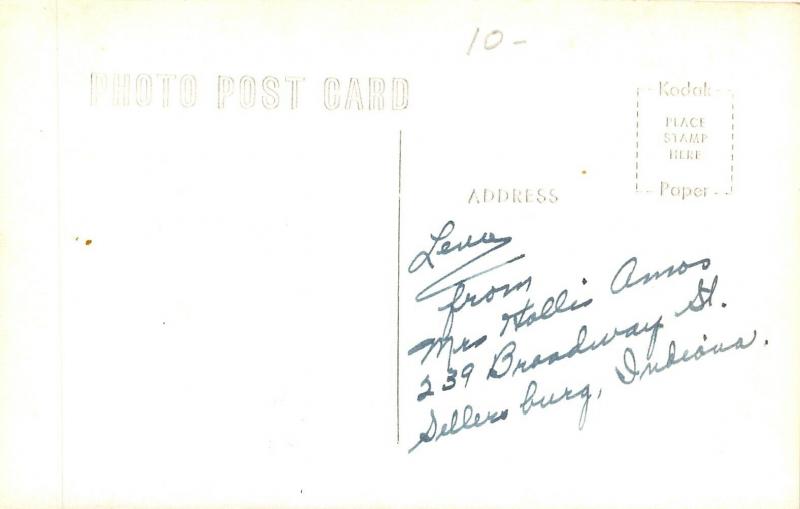 10-
PHOTO POST CARD
Kodak
PLACE
STAMP
HERE
Paper
ADDRESS
Lena
from
Mrs Hollis Amos
239 Broadway St.
Sellersburg, Indiana.